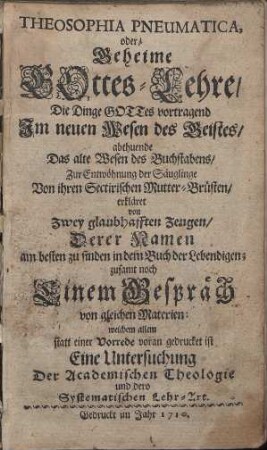 THEOSOPHIA PNEUMATICA,
oder
Geheime
GOttes-Lehre/
Die Dinge GOTTes vortragend
Im neuen Wesen des Geistes/
abthuende
Das alte Wesen des Buchstabens/
Zur Entwöhnung der Säuglinge
Von ihren Sectirischen Mutter-Brüsten/
erkläret
von
Zwey glaubhafften Zeugen/
Derer Namen
am besten zu finden in dem Buch der Lebendigen;
zusamt noch
Einem Gespräch
von gleichen Materien:
welchem allem
statt einer Vorrede voran gedrucket ist
Eine Untersuchung
Der Academischen Theologie
und dero
Systematischen Lehr-Art.
Gedruckt im Jahr 1710.